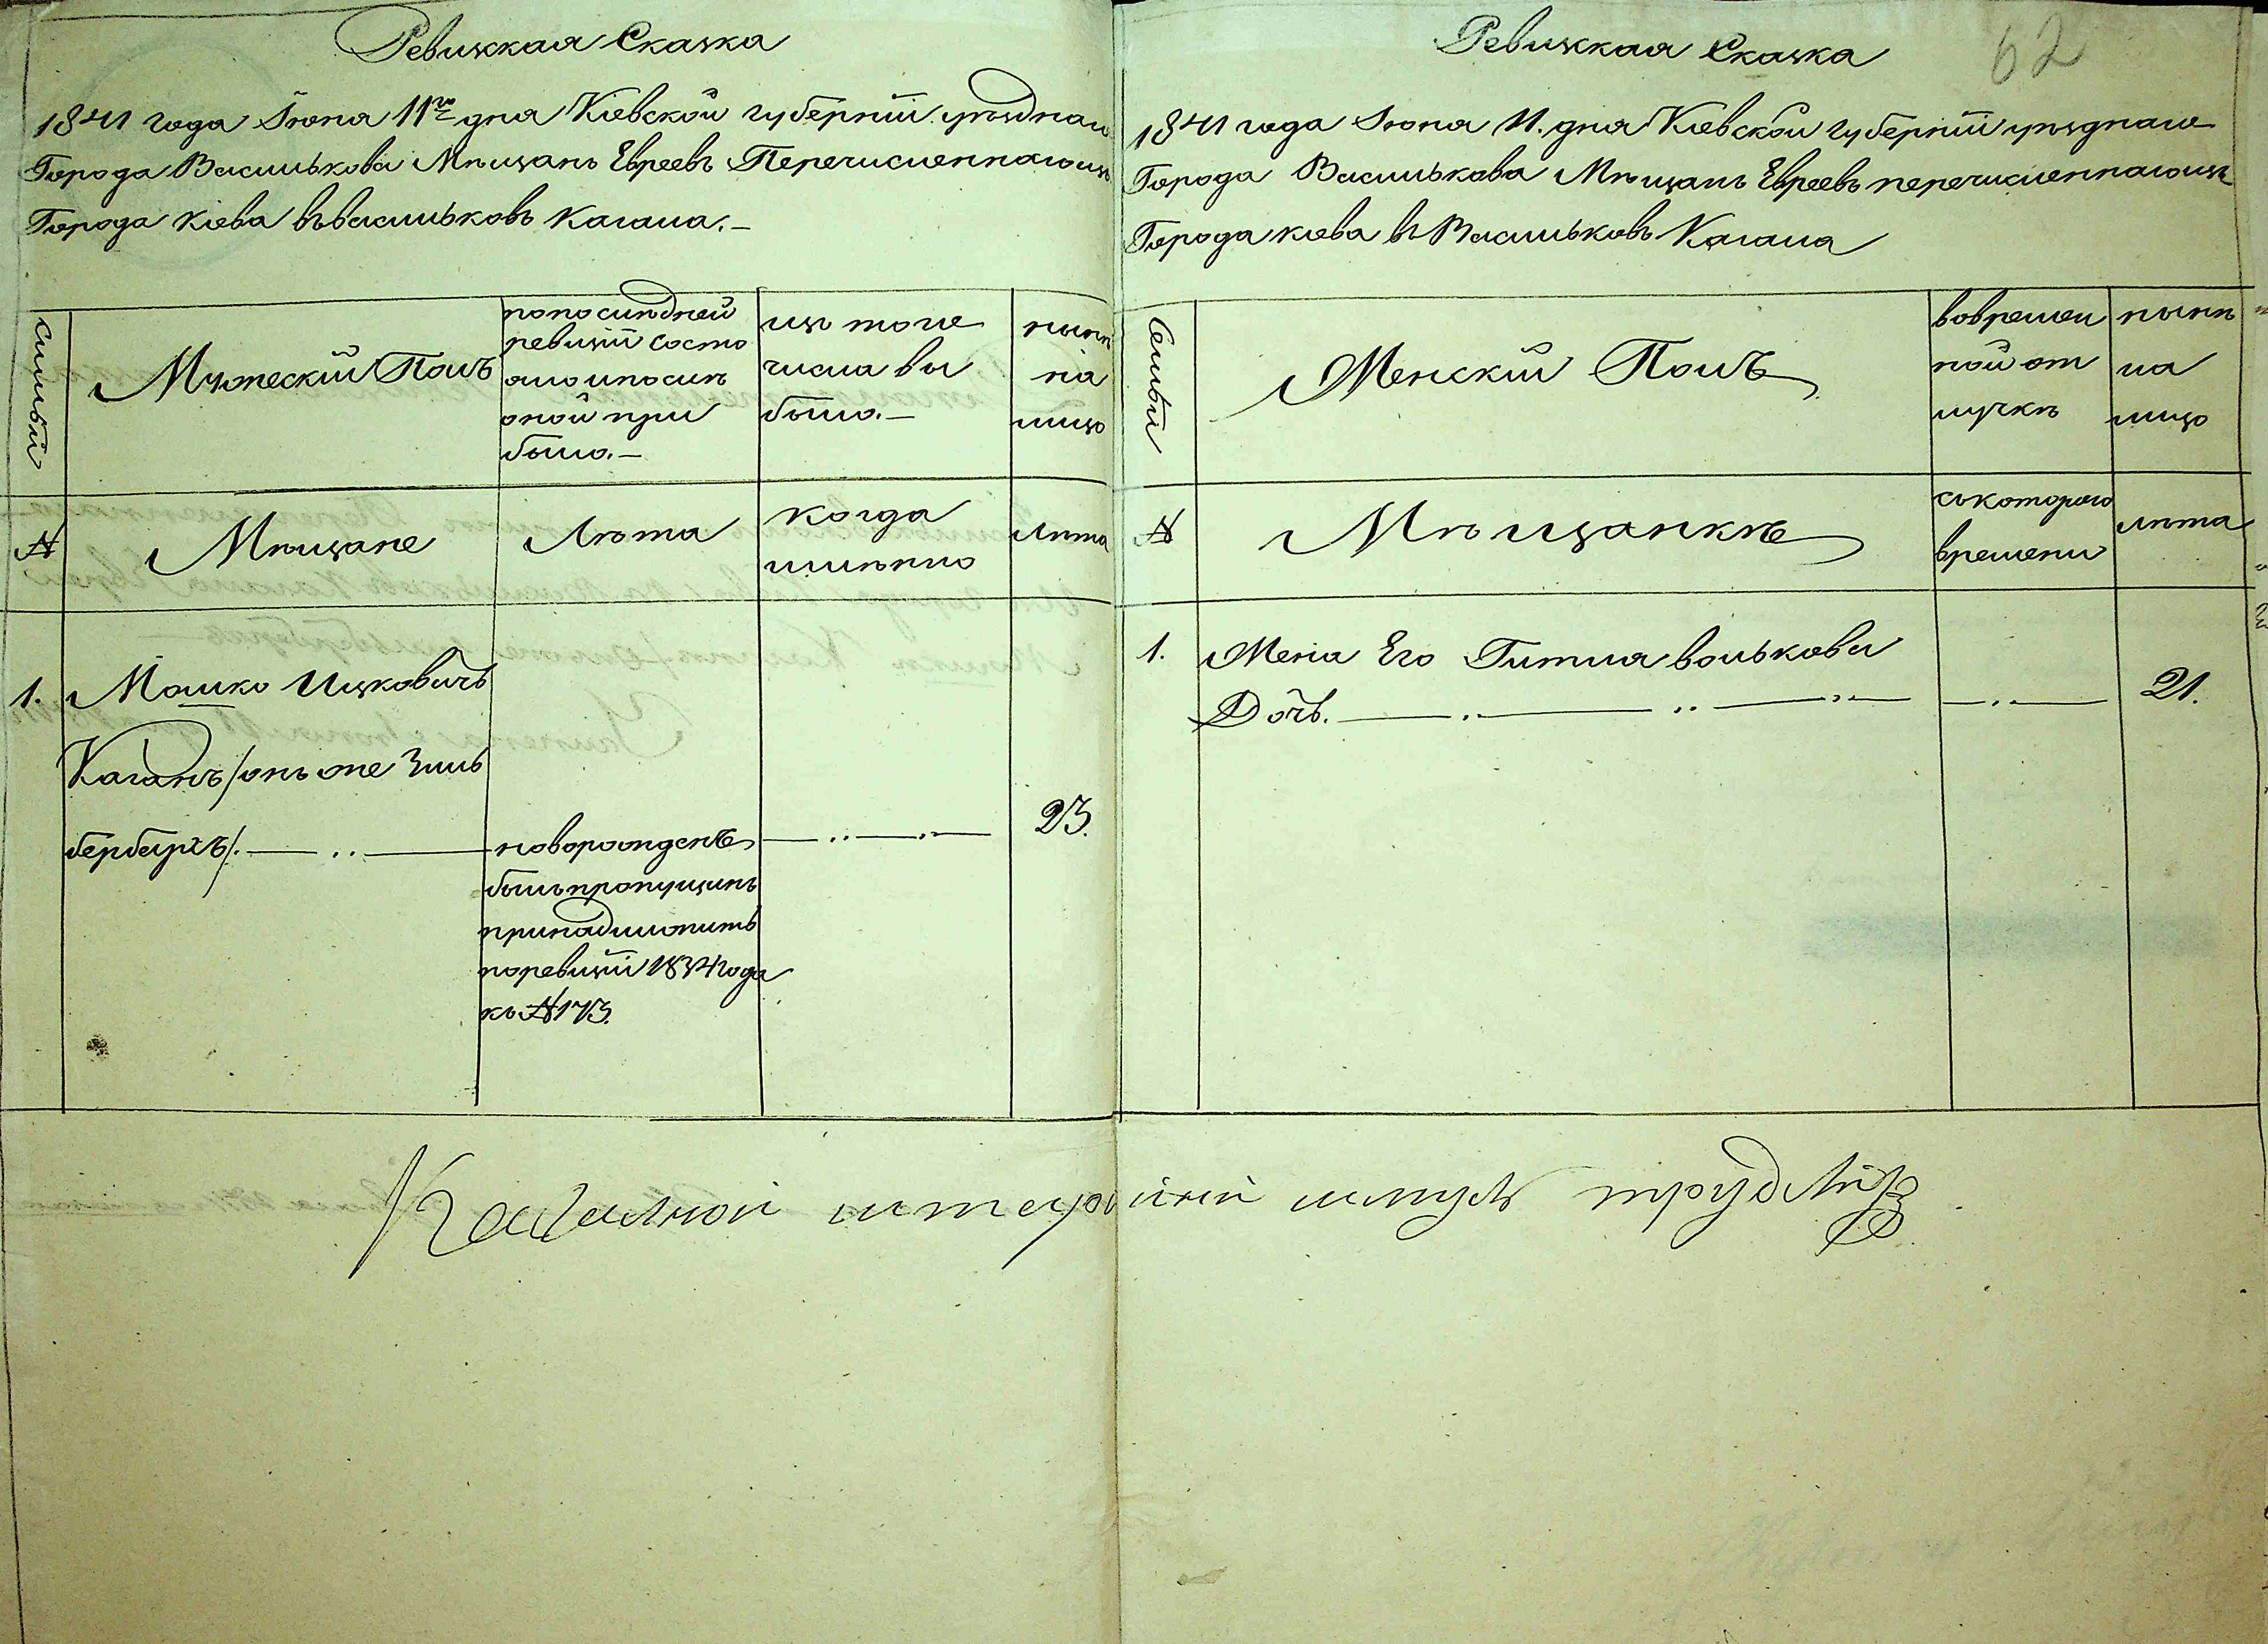 Ревижкая Сказка
1841 года Іюня 11го дня Кіевской губерніи уѣзднаго
Города Василькова Мѣщанъ Евреевъ Перечисленнаго изъ
Города Кіева въ васильковъ Кагала.—
Семьи
Мужескій Полъ
по послѣдней
ревизіи состо
яло и послѣ
оной при
было.—
изъ того
числа вы
было.—
нынѣ
на
лицо
№
Мѣщане
Лѣта
когда
именно
Лѣта
1.
Мошко Ицковичъ
Каганъ /онъ же Зиль
берберхъ/.
новорожденъ
былъ пропущенъ
принадлежитъ
по ревизіи 1834 года
къ №173.
23.
62
Ревижкая Сказка
1841 года Іюня 11. дня Кіевской губерніи уѣзднаго
Города Василькова Мѣщанъ Евреевъ перечисленнаго изъ
Города кіева въ Васильковъ Кагала
Семьи
Женскій Полъ
во времен
ной от
лучкѣ
нынѣ
на
лицо
№
Мѣщанкѣ
съ котораго
времени
лѣта
1.
Жена Его Гитля волькова
Дочь.
21.